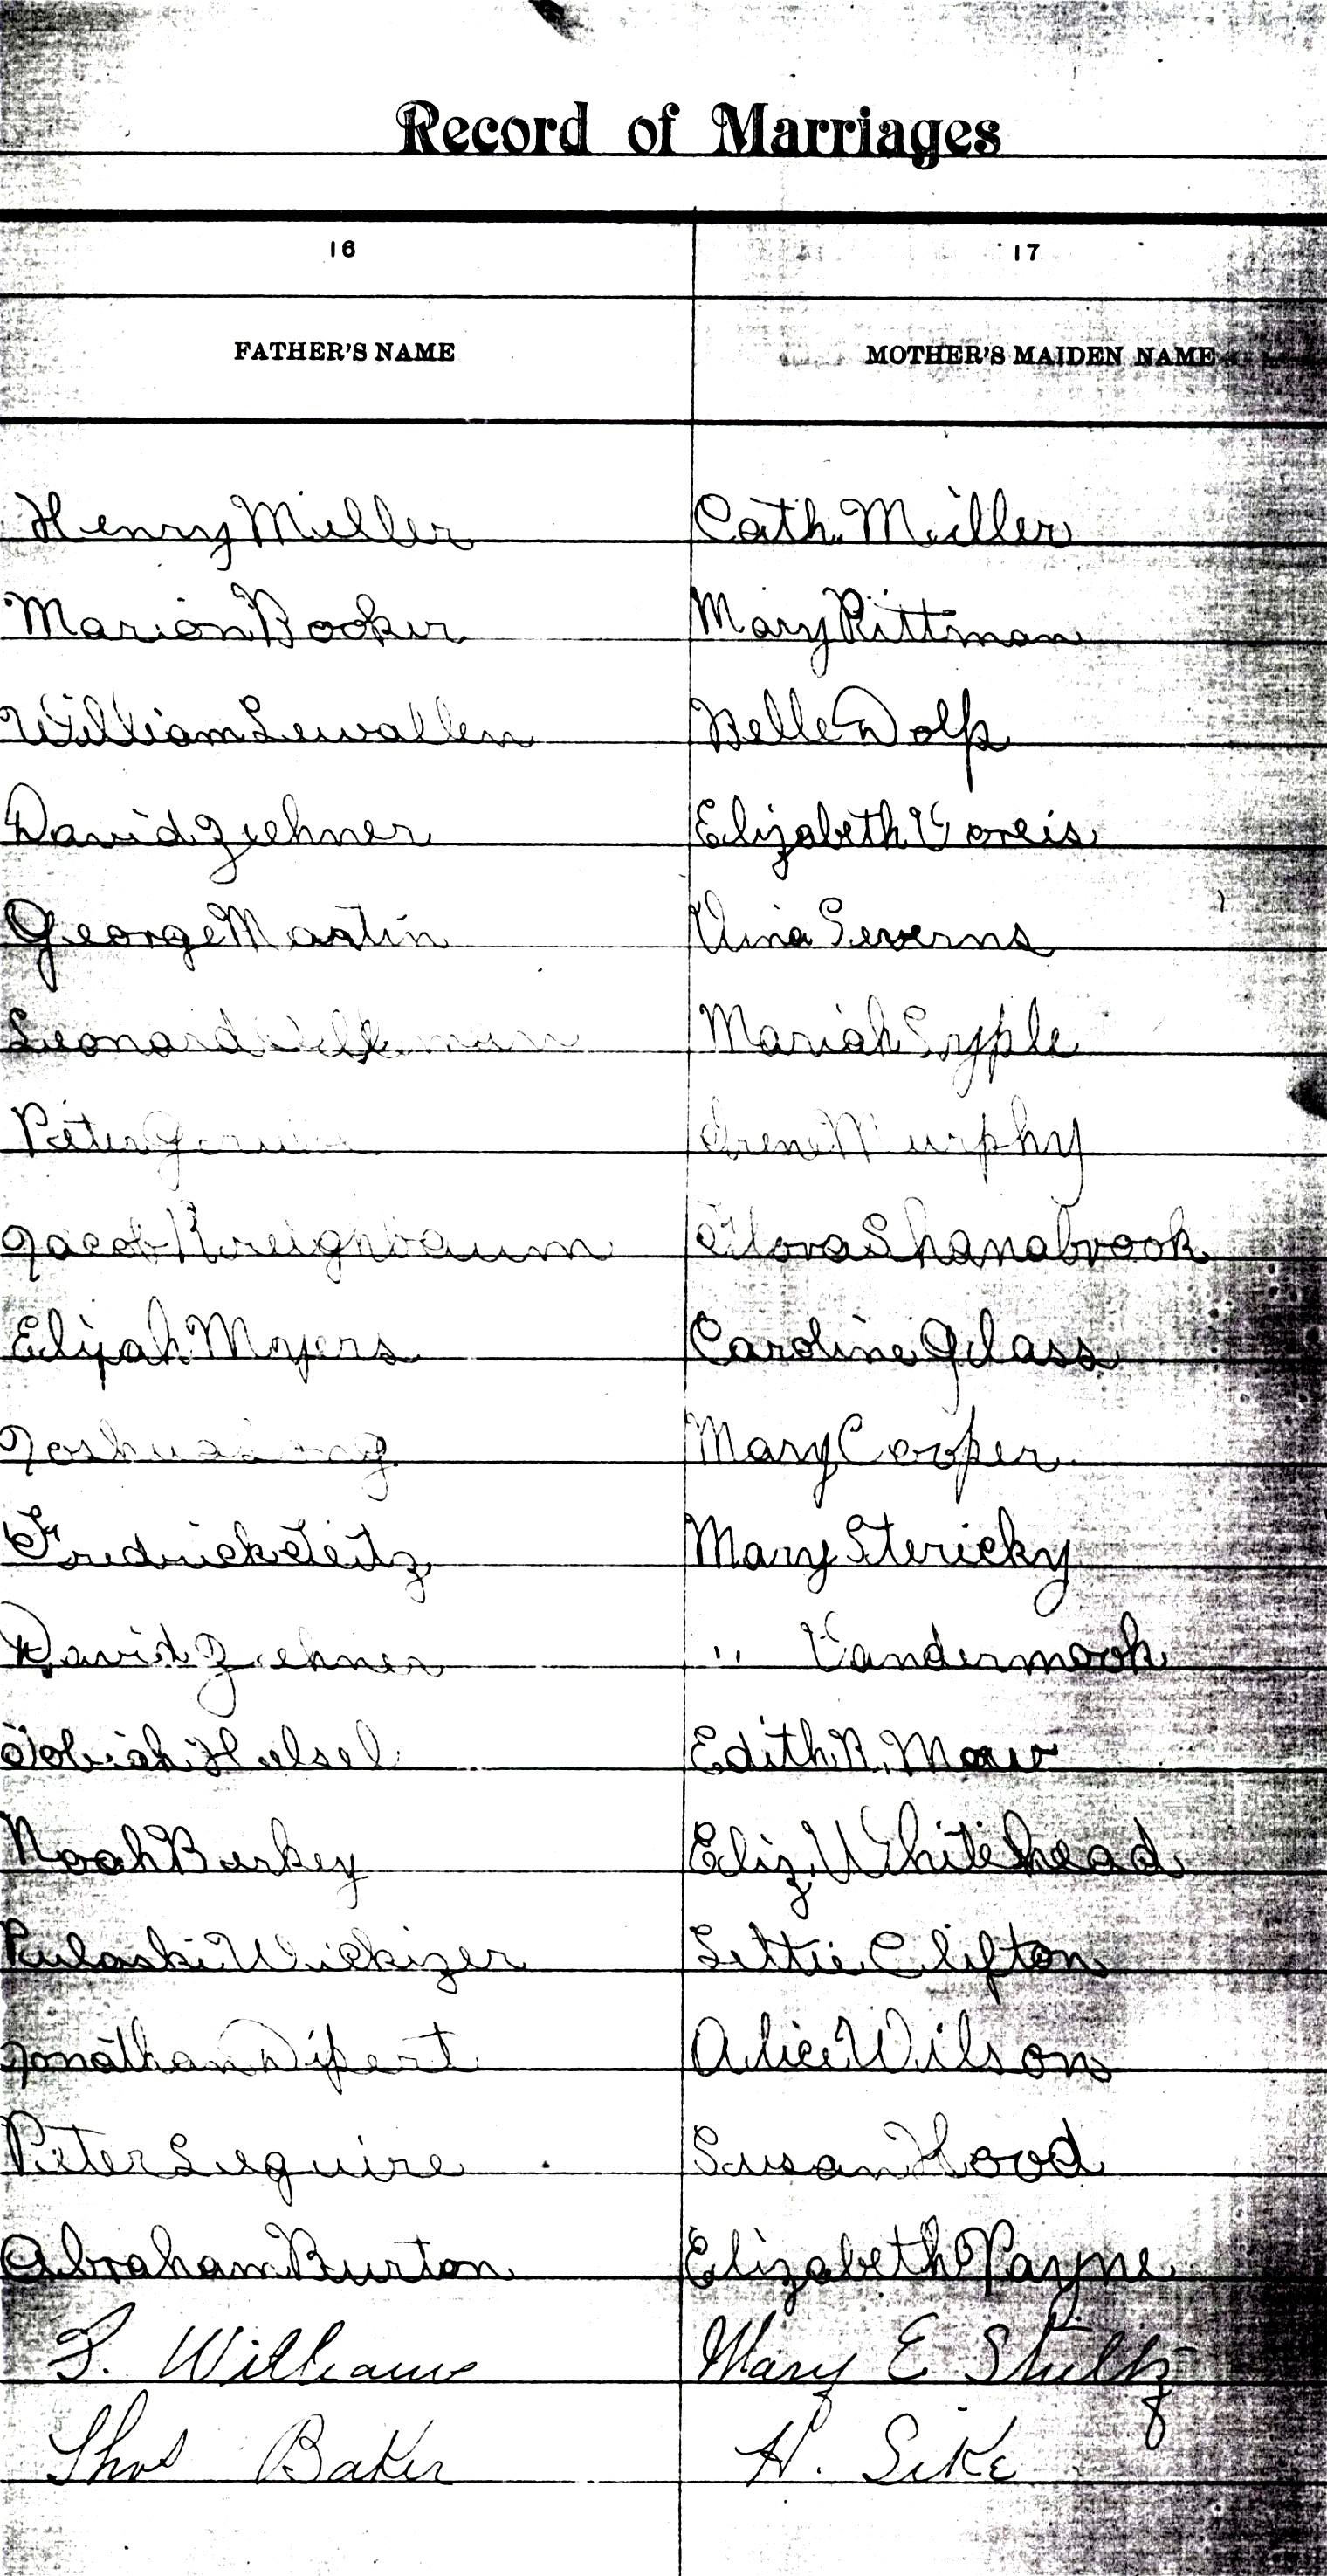 Record of Marriages
16 17
FATHER'S NAME MOTHER'S MAIDEN NAME
Henry Miller Cath. Miller
Marion Booker Mary Pittman
William Lewallen Belle Wolf
David Ziehner Elizabeth Voreis
George Martin Vina Severns
Leonard Mariah Syple
Peter Irene Murphy
Jacob Kreighbaum Flora Shanabrook
Elijah Myers Caroline Glass
Joshua Mary Cooper
Fredrick Seitz Mary Stericky
David Ziehner " Vandermark
Tobiah Hulsel Edith R. Mow
Noah Berkey Eliz. Whitehead
Pulaski Wickizer Lettie Clifton
Jonathan Dipert Alice Wilson
Peter Leguire Susan Hood
Abraham Burton Elizabeth Payne
Williams Mary E Shultz
Thos Baker H. Sike